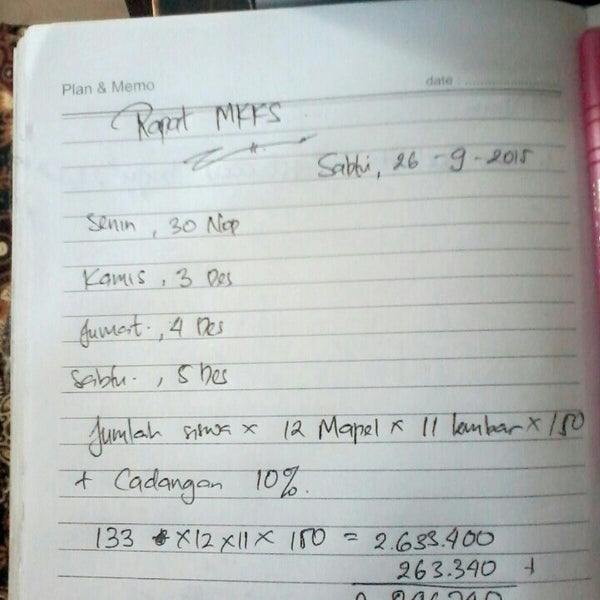 Plan & Memo
date :
Rapat MKKS
Sabtu, 26 - 9 - 2015
Senin, 30 Nop
Kamis, 3 Des
Jumat, 4 Des
Sabtu, 5 Des
Jumlah siswa × 12 Mapel × 11 lembar × 150
+ Cadangan 10%.
133 × 12 × 11 × 150 = 2.633.400
263.340 +